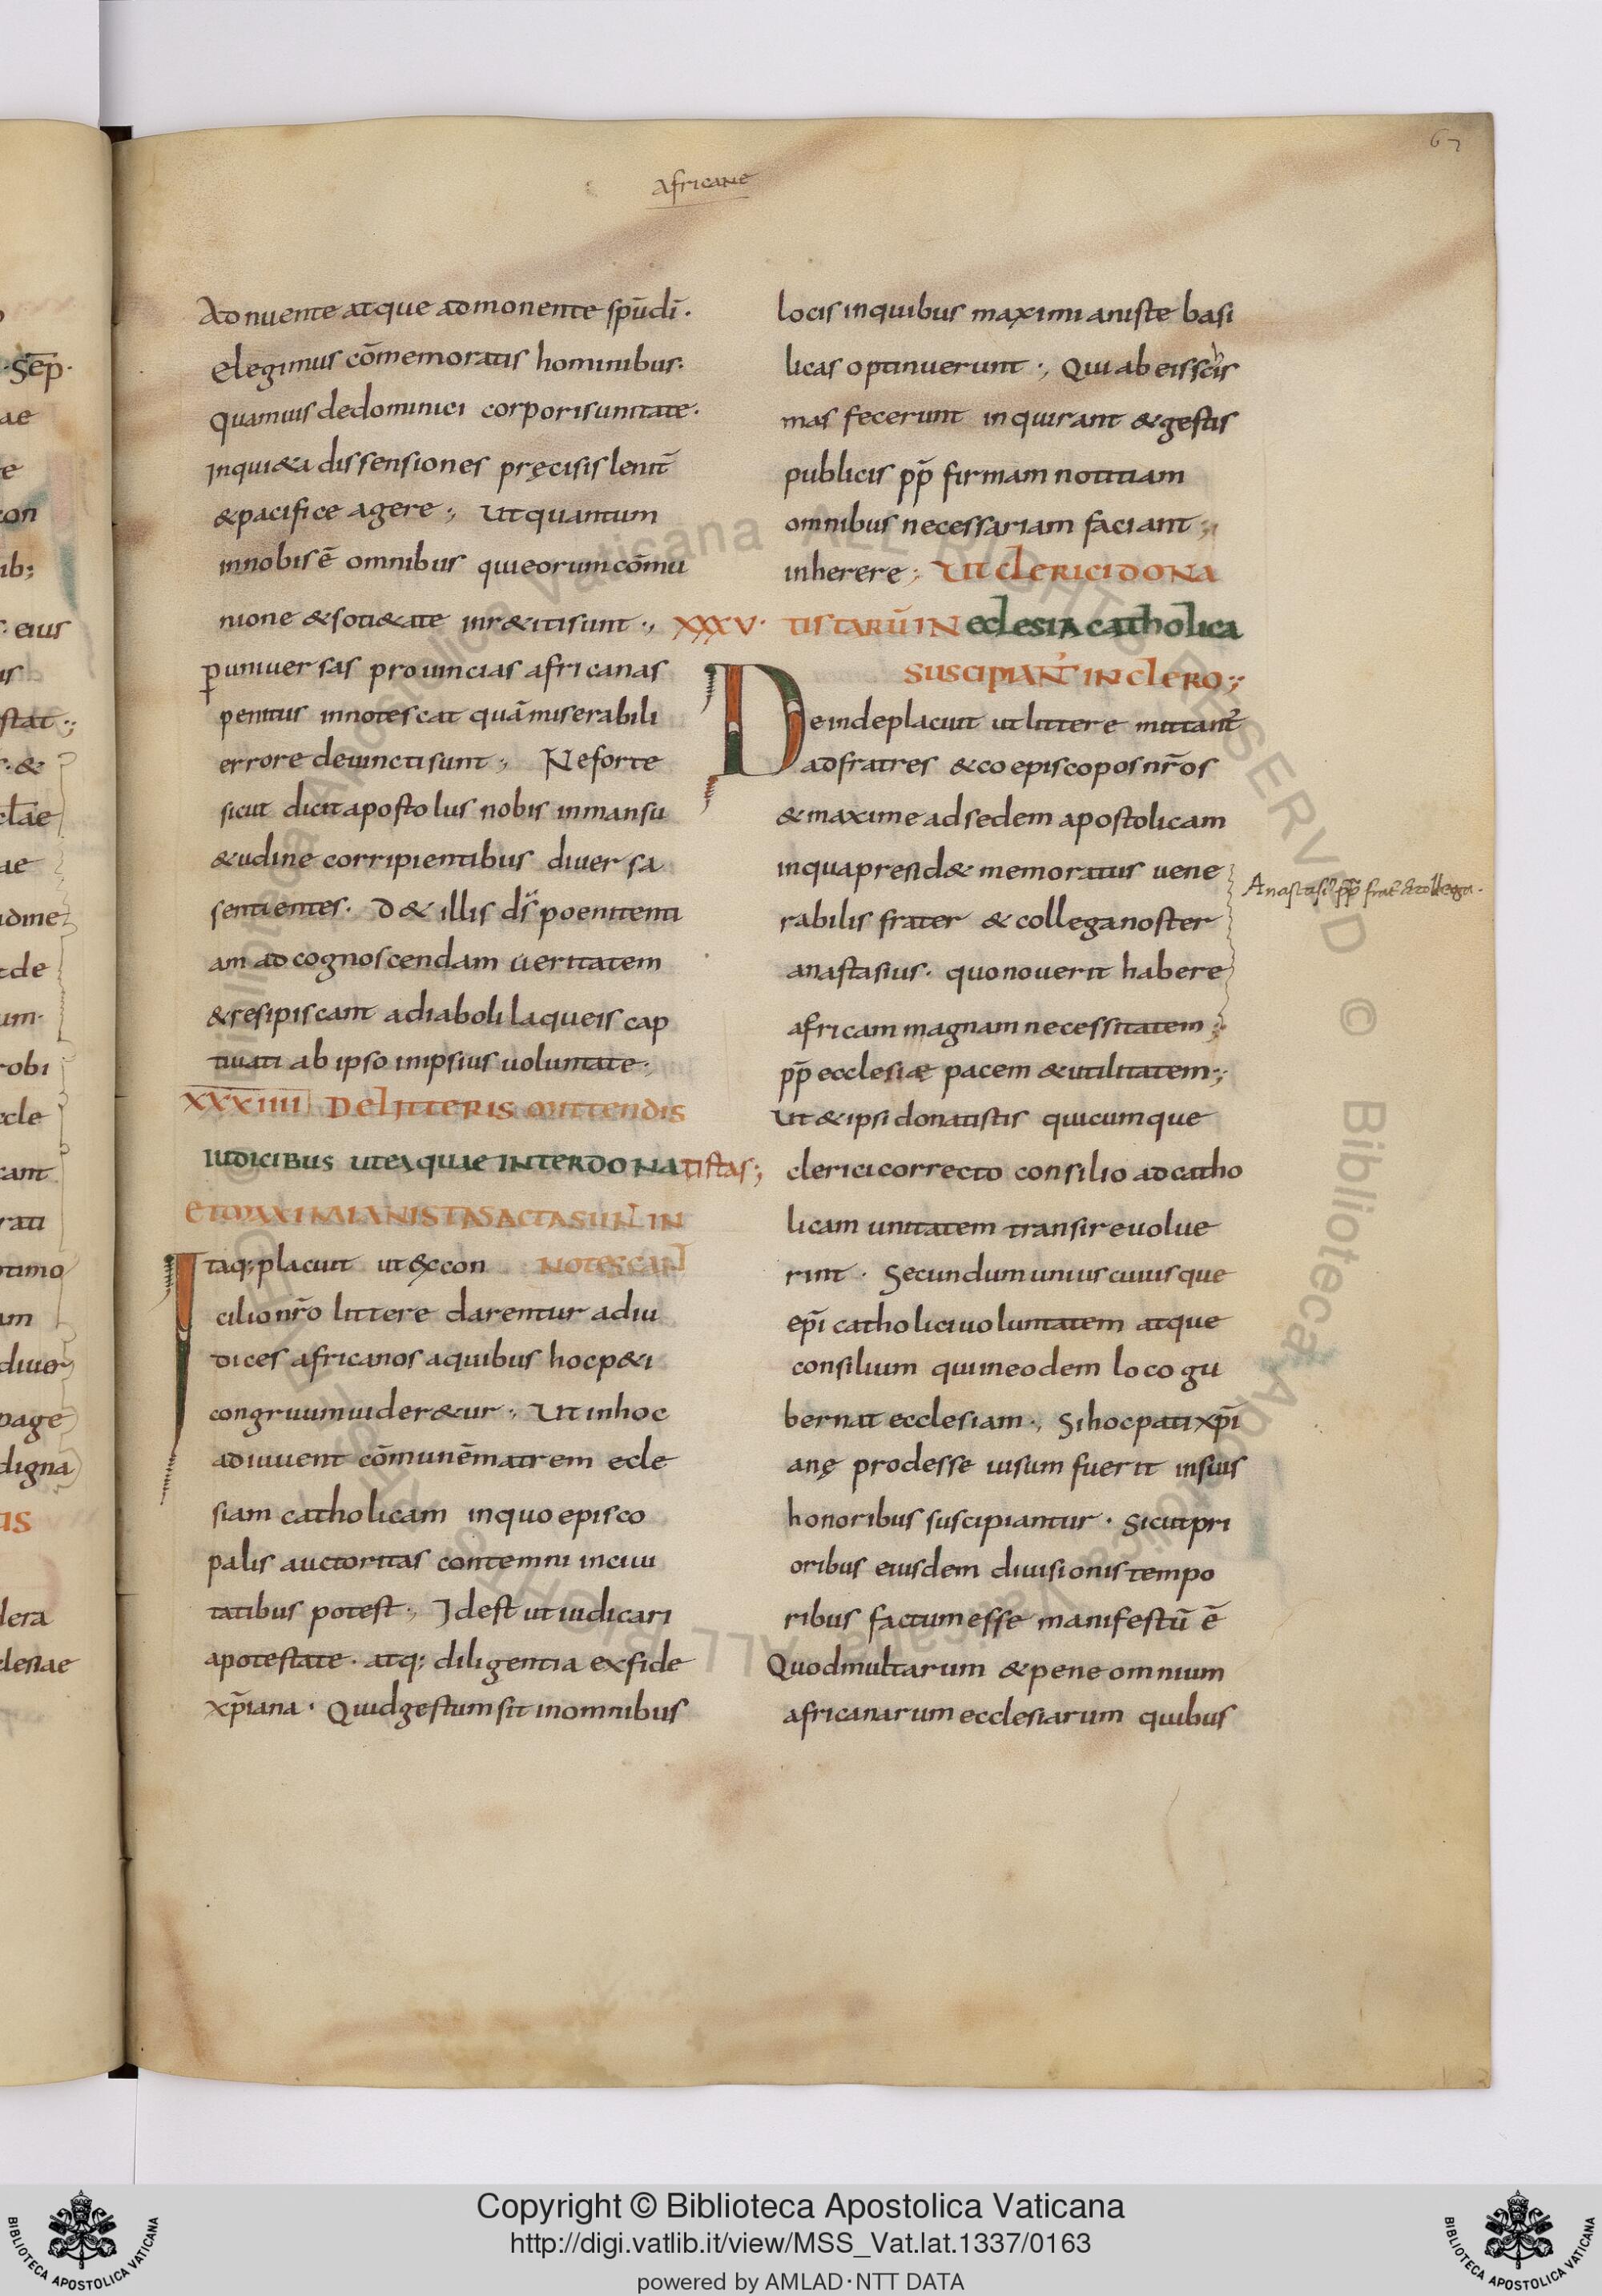 67
Africane
Adnuente atque admonente sp̄u dī·
elegimus cōmemoratis hominibus·
quamuis de dominici corporis unitate·
inqui&a dissensiones pręcisis lenit̄
& pacifice agere; Ut quantum
in nobis ē omnibus qui eorum cōmu
nione & soti&ate inr&iti sunt·,
ꝑ uniuersas prouincias africanas
penitus innotescat quā miserabili
errore deuincti sunt; Ne forte
sicut dicit apostolus nobis in mansu
&udine corripientibus diuersa
sentientes· D& illis ds̄ poenitenti
am ad cognoscendam ueritatem
& resipiscant a diaboli laqueis cap
tiuati ab ipso in ipsius uoluntate·,
XXXIIII DE LITTERIS MITTENDIS
IUDICIBUS UT EA QUAE INTER DONATISTAS;
ET MAXIMIANISTAS ACTA SUNT IN
NOTESCANT
Itaq; placuit ut & ex con
cilio nr̄o littere darentur ad iu
dices africanos a quibus hoc p&i
congruum uider&ur·, Ut in hoc
adiuuent cōmunēmatrem ecle
siam catholicam in quo episco
palis auctoritas contemni in ciui
tatibus potest·, Id est ut iudicari
a potestate· atq; diligentia ex fide
xp̄iana· Quid gestum sit in omnibus
locis in quibus maximianiste basi
licas optinuerunt·, Qui ab eis scis
mas fecerunt inquirant & gestis
publicis pp̄ firmam notitiam
omnibus necessariam faciant;
inherere; UT CLERICI DONA
XXXV· TISTARŪ IN eclesia catholica
SUSCIPIANT̄ IN CLERO;
Deinde placuit ut littere mittant̄
ad fratres & coepiscopos nr̄os
& maxime ad sedem apostolicam
in qua presid& memoratus uene
rabilis frater & collega noster
Anastasi' pp̄ frat̄ & collega·
anastasius· quo nouerit habere
africam magnam necessitatem;
pp̄ ecclesiæ pacem & utilitatem;
Ut & ipsi donatistis quicumque
clerici correcto consilio ad catho
licam unitatem transire uolue
rint· Secundum uniuscuiusque
ep̄i catholici uoluntatem atque
consilium qui in eodem loco gu
bernat ecclesiam·, Si hoc pati xp̄i
anę prodesse uisum fuerit in suis
honoribus suscipiantur· Sicut pri
oribus eiusdem diuisionis tempo
ribus factum esse manifestū ē
Quod multarum & pene omnium
africanarum ecclesiarum quibus
Copyright © Biblioteca Apostolica Vaticana
http://digi.vatlib.it/view/MSS_Vat.lat.1337/0163
powered by AMLAD·NTT DATA